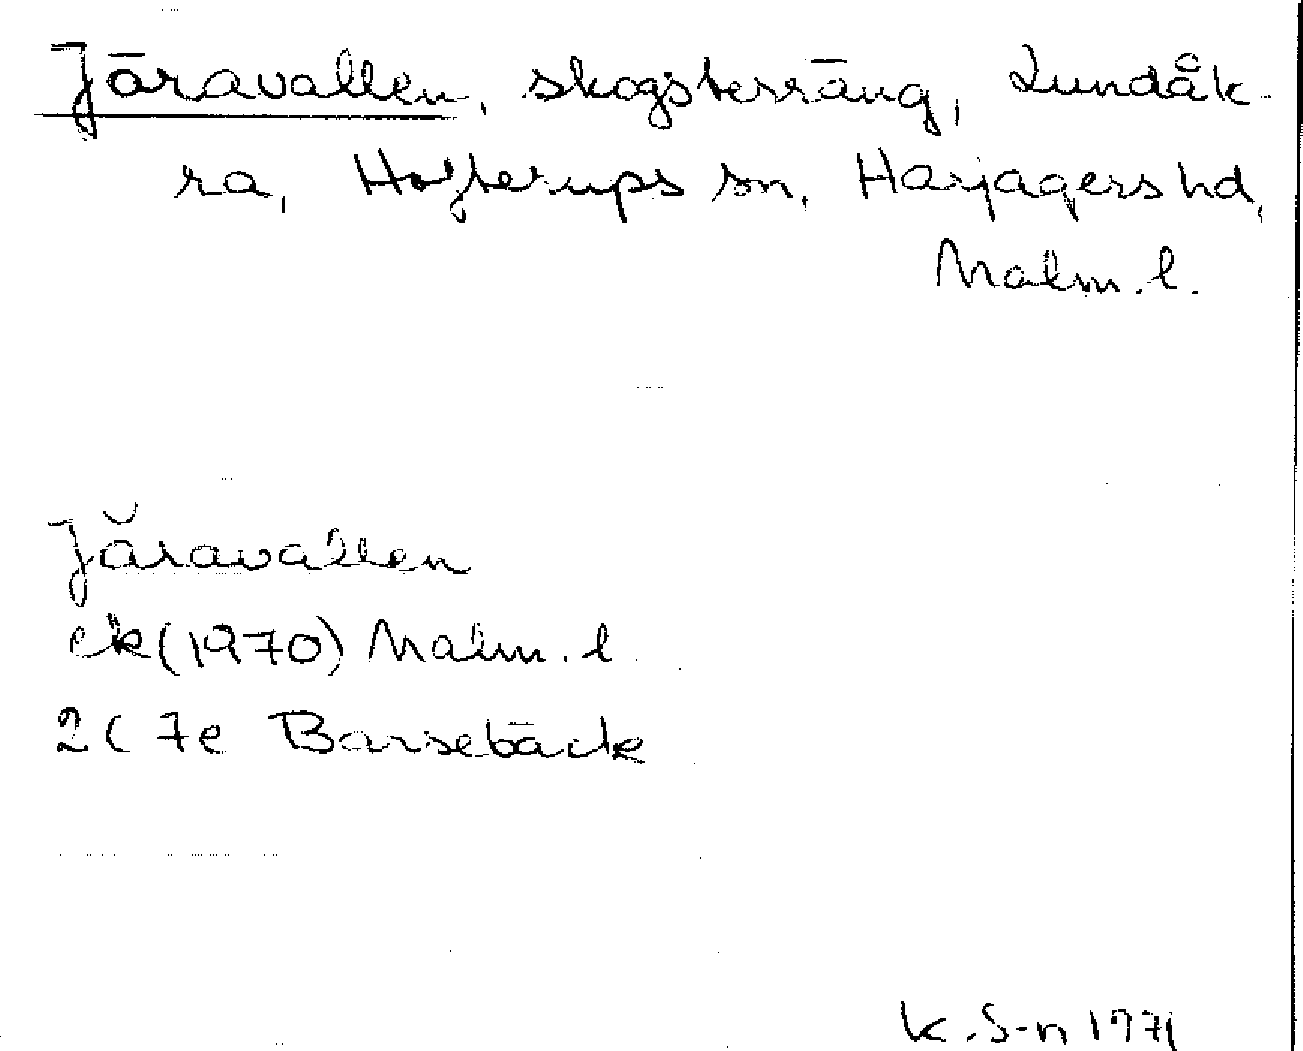 Järavallen, skogsterräng, Lundåk-
ra, Hofterups sn, Harjagers hd,
Malm. l.
Järavallen
ek (1970) Malm. l.
2C 7e Barsebäck
K. S-n 1971